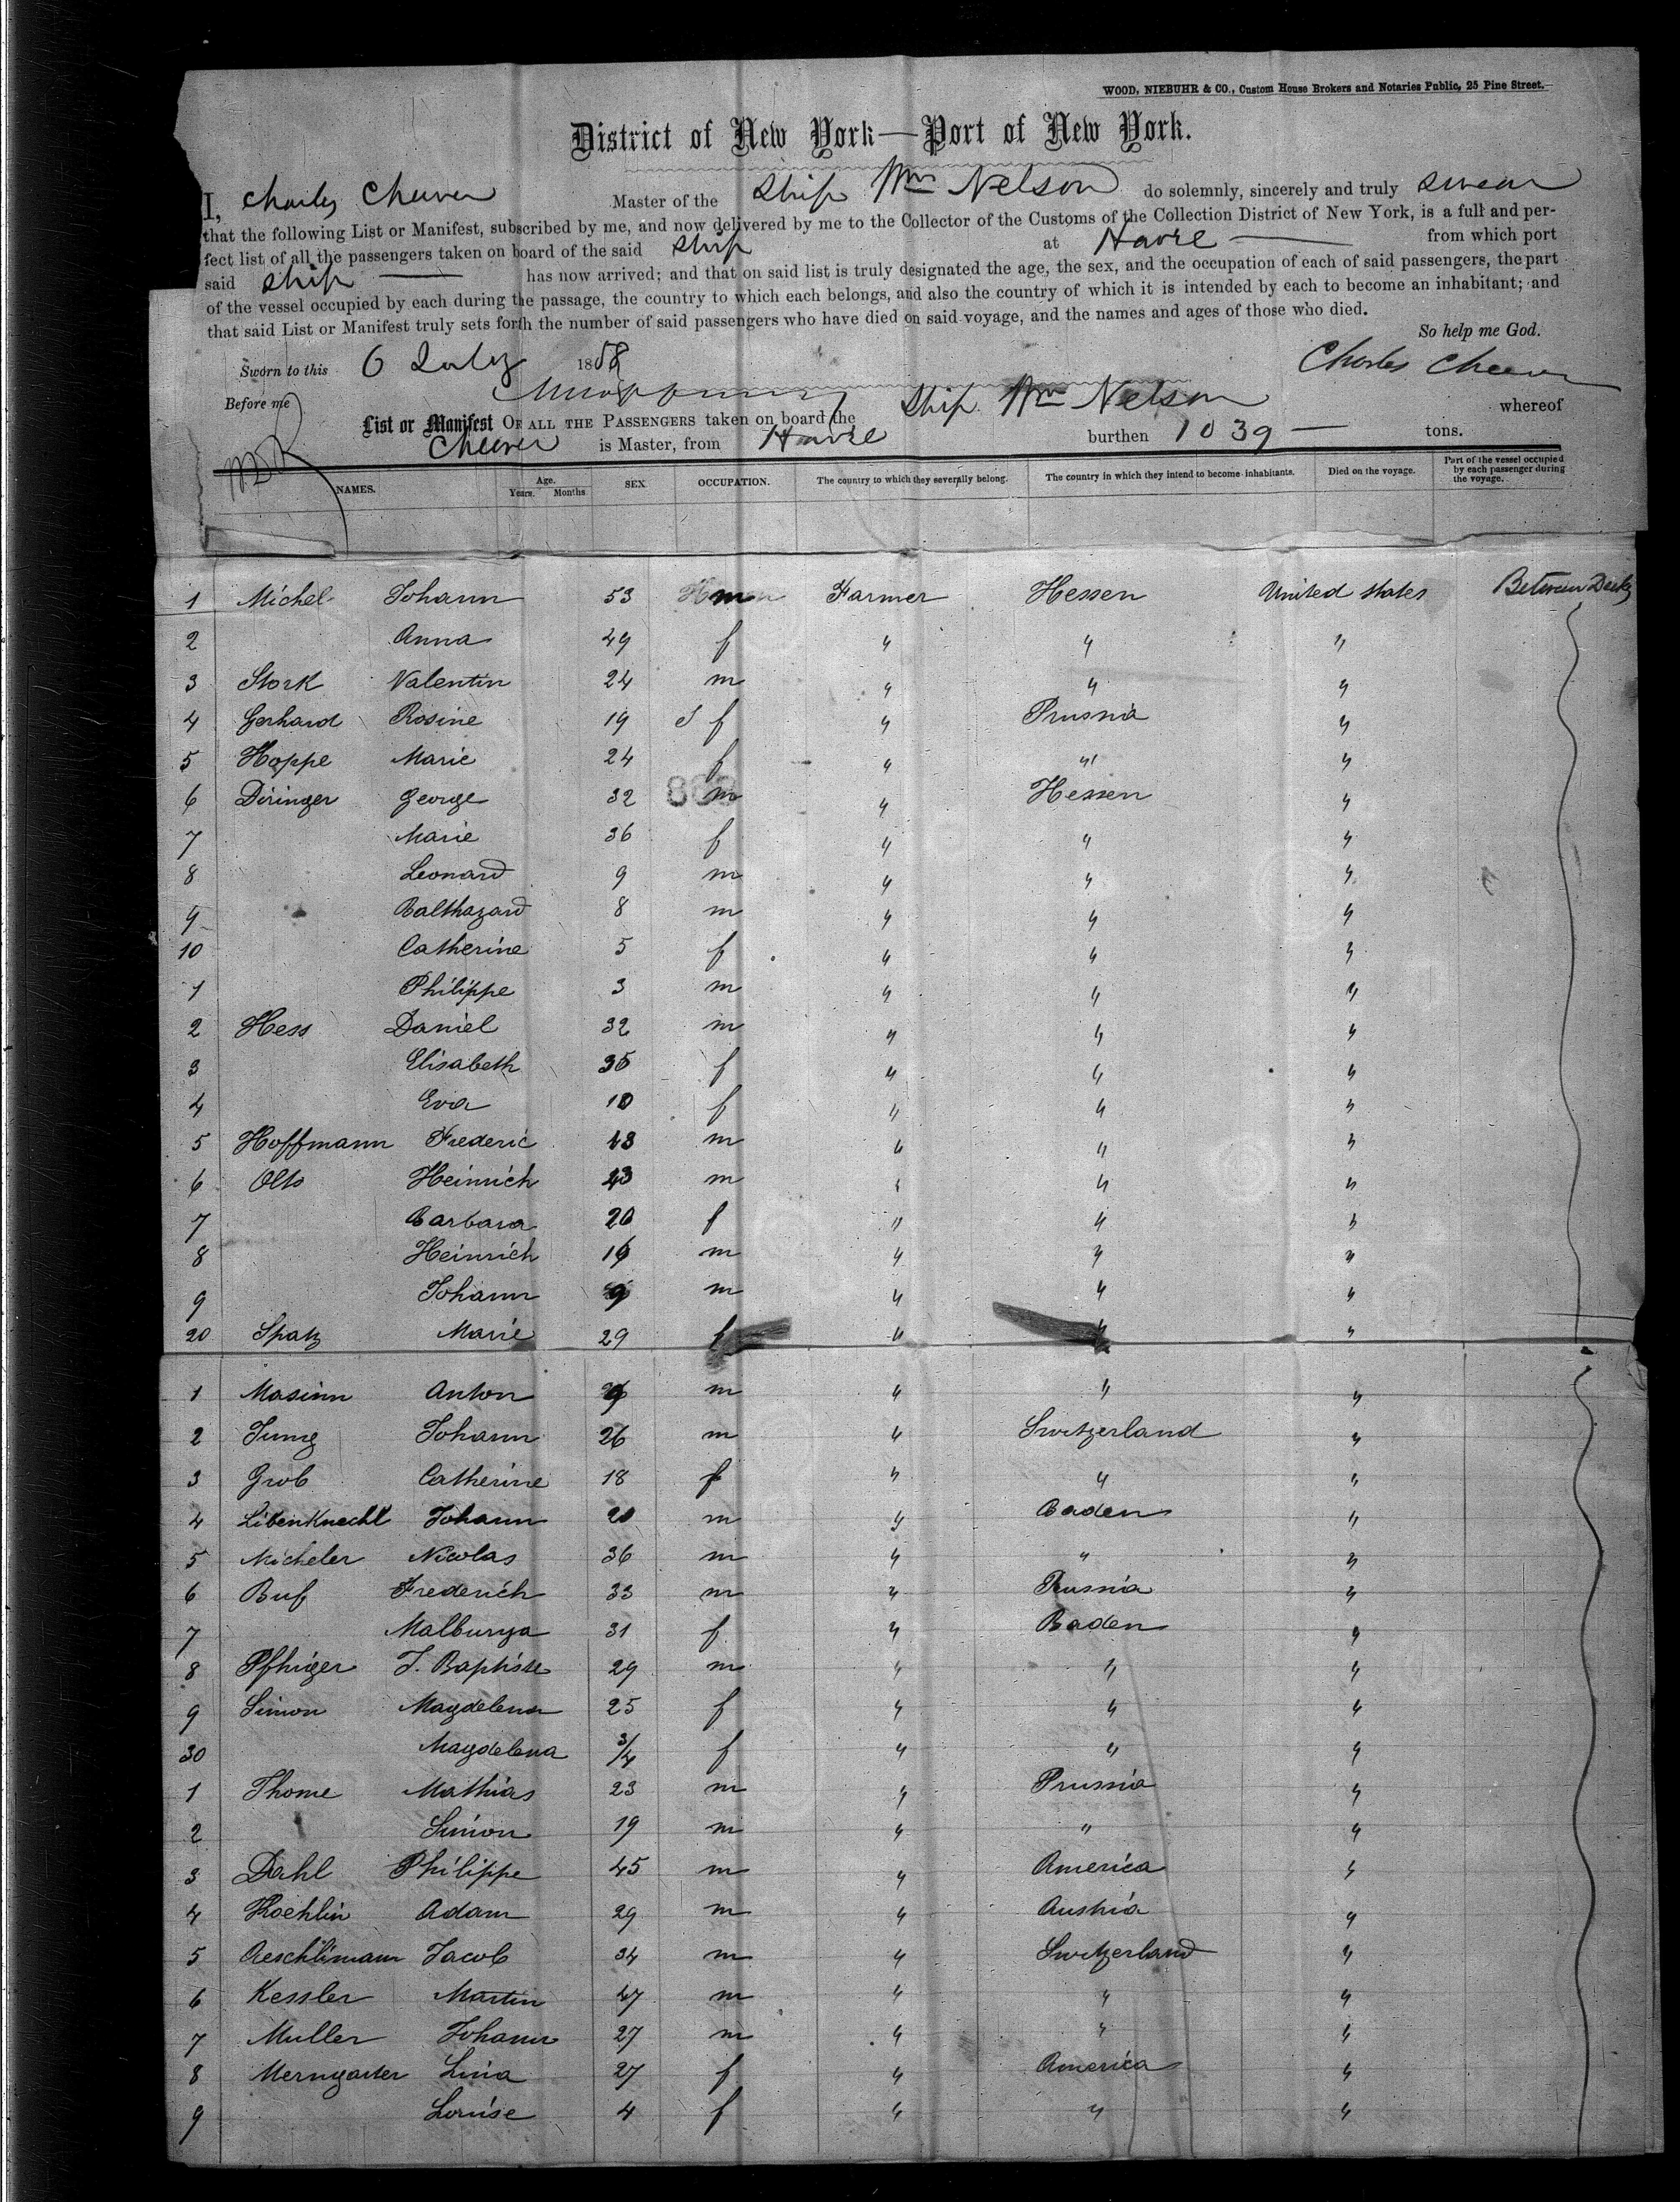 WOOD, NIEBUHR & CO., Custom House Brokers and Notaries Public, 25 Pine Street.
District of New York—Port of New York.
I, Charles Cheever Master of the Ship Wm Nelson do solemnly, sincerely and truly swear
that the following List or Manifest, subscribed by me, and now delivered by me to the Collector of the Customs of the Collection District of New York, is a full and per-
fect list of all the passengers taken on board of the said Ship at Havre — from which port
said Ship — has now arrived; and that on said list is truly designated the age, the sex, and the occupation of each of said passengers, the part
of the vessel occupied by each during the passage, the country to which each belongs, and also the country of which it is intended by each to become an inhabitant; and
that said List or Manifest truly sets forth the number of said passengers who have died on said voyage, and the names and ages of those who died.
So help me God.
Sworn to this 6 July 1858 Charles Cheever
Before me
List or Manifest OF ALL THE PASSENGERS taken on board the Ship Wm Nelson whereof
Cheever is Master, from Havre burthen 1039 — tons.
NAMES. Age. Years. Months. SEX. OCCUPATION. The country to which they severally belong. The country in which they intend to become inhabitants. Died on the voyage. Part of the vessel occupied by each passenger during the voyage.
1 Michel Johann 53 m Farmer Hessen United States Between Decks
2 Anna 49 f " " "
3 Stork Valentin 24 m " " "
4 Gerhard Rosine 19 f " Prussia "
5 Hoppe Marie 24 f " " "
6 Diringer George 32 m " Hessen "
7 Marie 36 f " " "
8 Leonard 9 m " " "
9 Balthazard 8 m " " "
10 Catherine 5 f " " "
1 Philippe 3 m " " "
2 Hess Daniel 32 m " " "
3 Elisabeth 35 f " " "
4 Eva 10 f " " "
5 Hoffmann Frederic 18 m " " "
6 Otto Heinrich 23 m " " "
7 Barbara 20 f " " "
8 Heinrich m " " "
9 Johann 9 m " " "
20 Spatz Marie 29 f " " "
1 Masinn Anton m " " "
2 Jung Johann 26 m " Switzerland "
3 Grob Catherine 18 f " " "
4 Libenknecht Johann 20 m " Baden "
5 Micheler Nicolas 36 m " " "
6 Buf Frederich 33 m " Prussia "
7 Malburga 31 f " Baden "
8 Pfhriger J. Baptiste 29 m " " "
9 Simon Magdelena 25 f " " "
30 Magdelena 3/4 f " " "
1 Thome Mathias 23 m " Prussia "
2 Simon 19 m " " "
3 Dahl Philippe 45 m " America "
4 Koehlin Adam 29 m " Austria "
5 Aeschlimann Jacob 34 m " Switzerland "
6 Kessler Martin 47 m " " "
7 Muller Johann 27 m " " "
8 Merngarter Lina 27 f " America "
9 Louise 4 f " " "